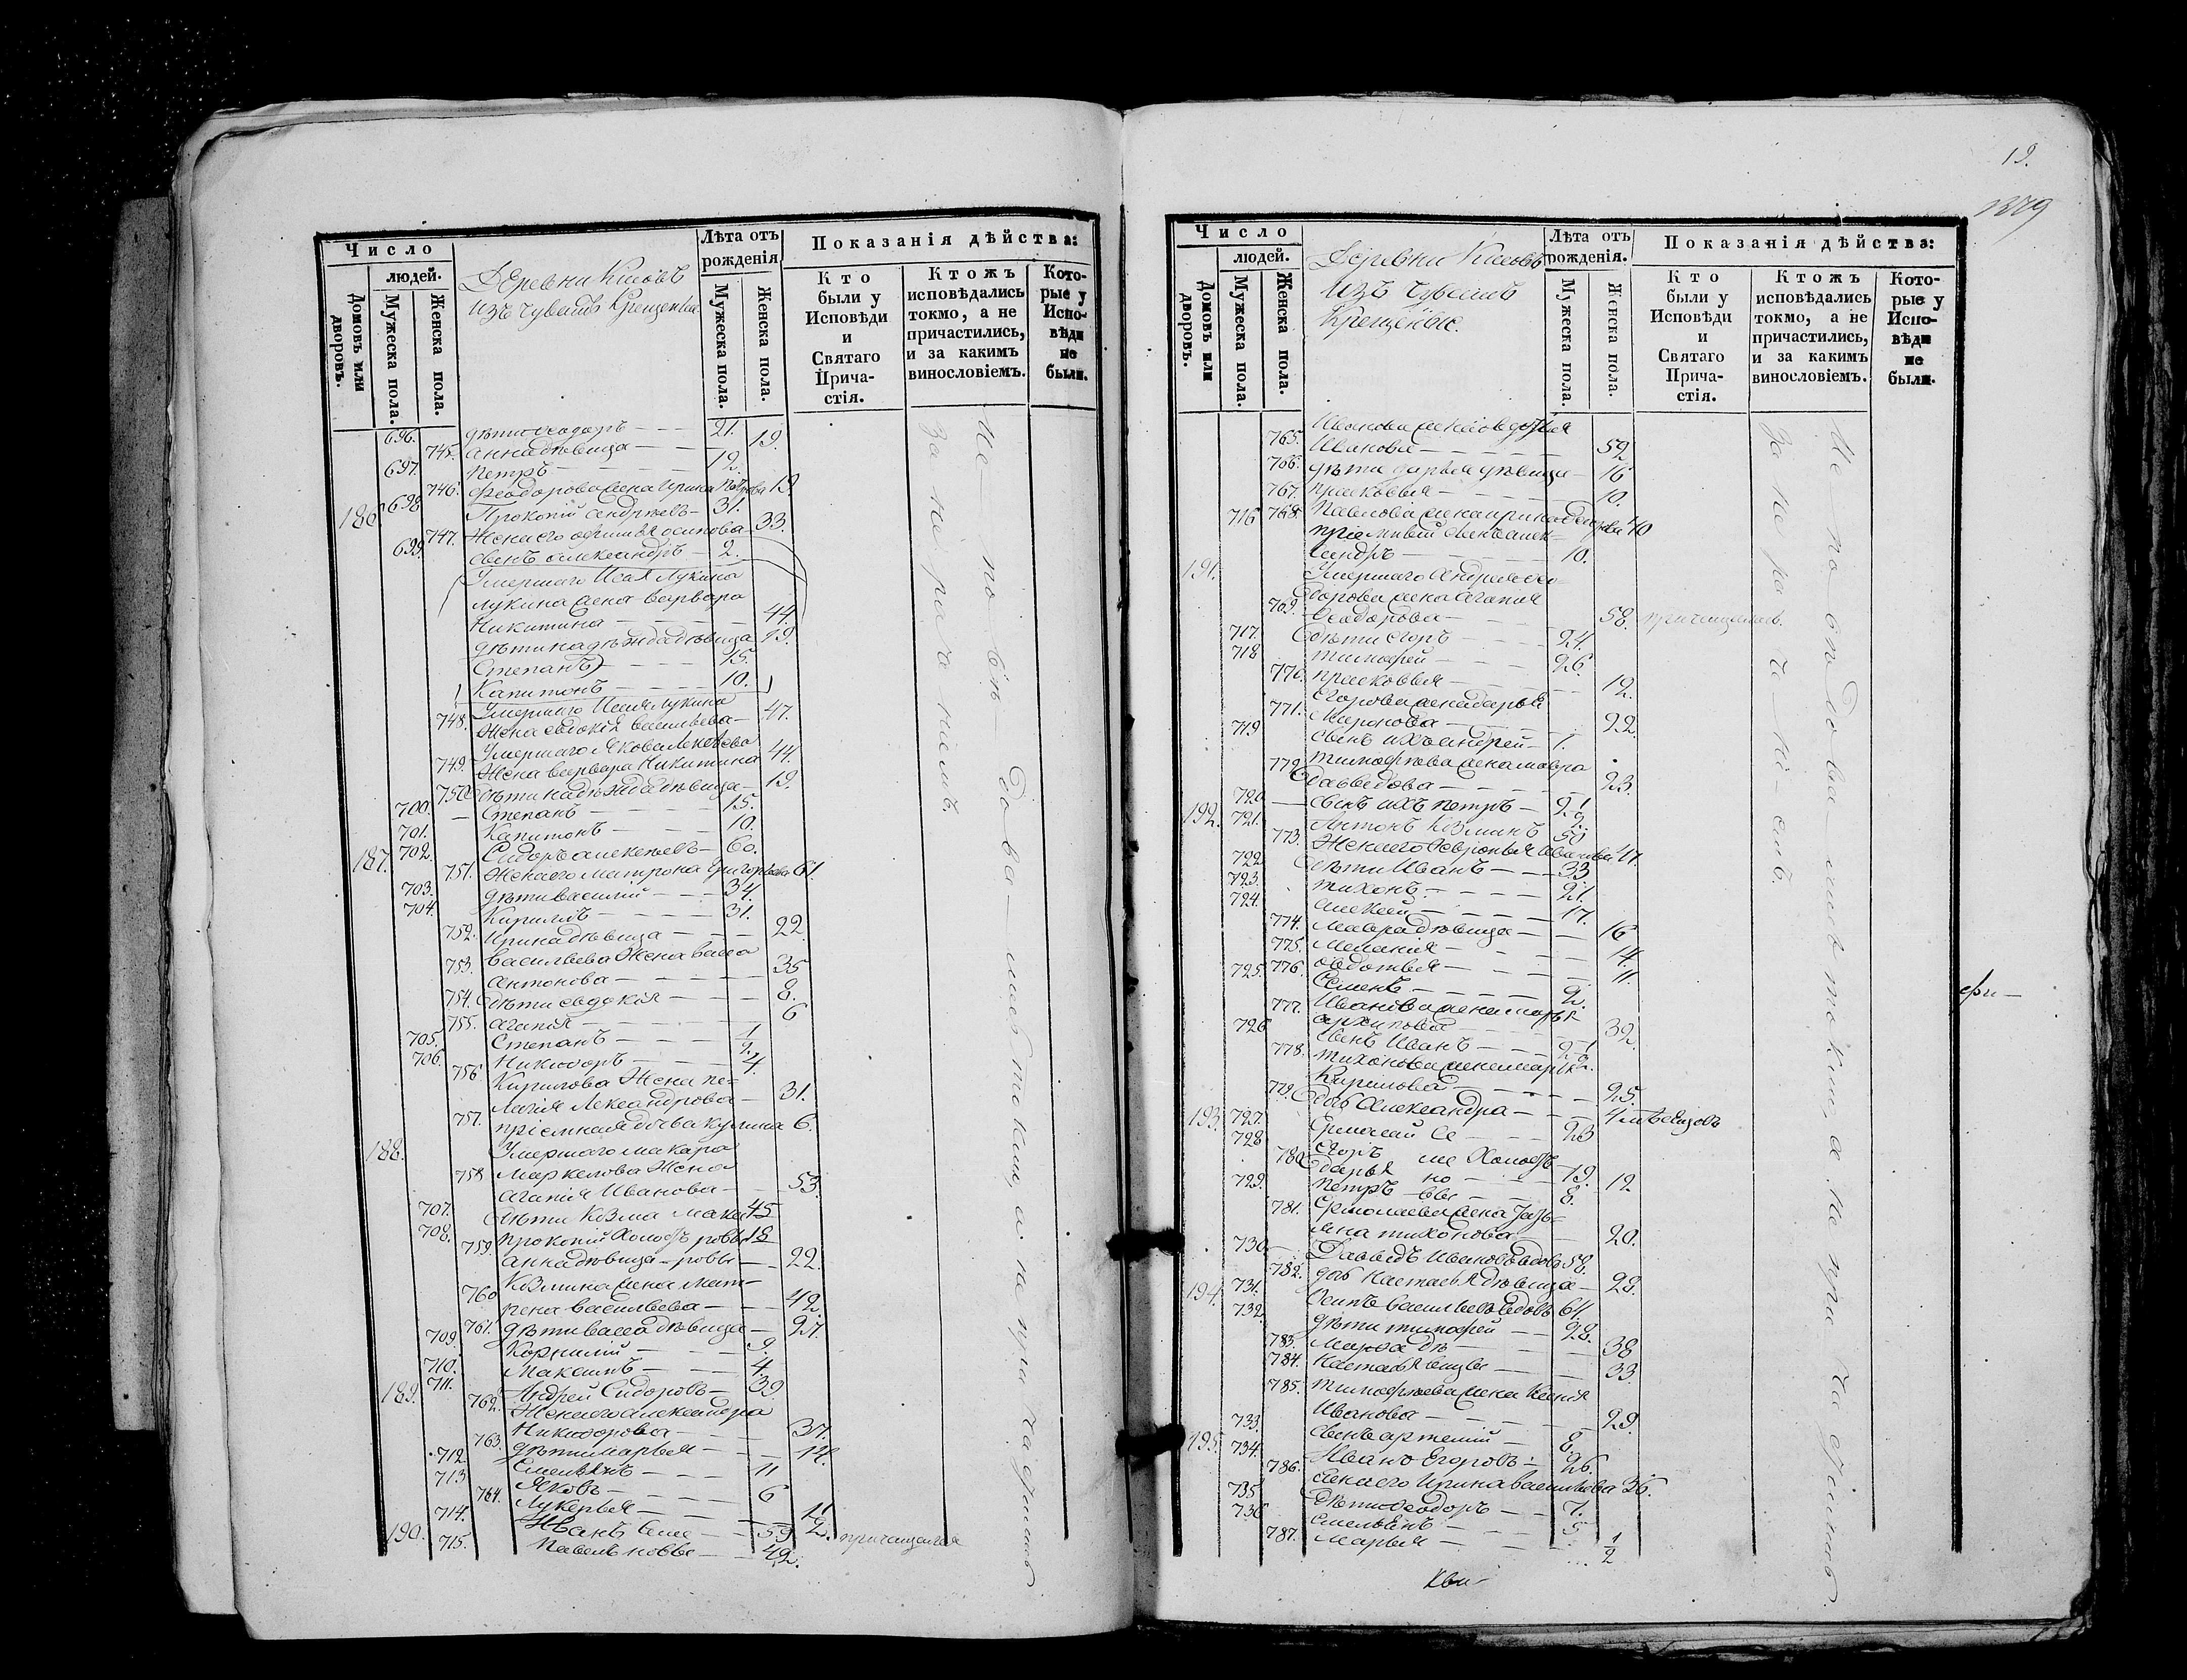 Число
людей.
Домовъ или дворовъ.
Мужеска пола.
Женска пола.
Деревни
изъ чувашъ Крещеные
Лѣта отъ рожденія
Мужеска пола.
Женска пола.
Показанія дѣйства:
Кто были у Исповѣди и Святаго Прича-стія.
Ктожъ исповѣдались токмо, а не причастились, и за какимъ винословіемъ.
Кото-рые у Испо-вѣди не были.
696. дѣти Ѳеодоръ 21.
745. Анна дѣвица 19.
697. Петръ 12.
746. Феодорова жена Ирина Петрова 19.
186 698 Прокопій Андреевъ 31.
747. Жена его Осипова 33.
699. Сынъ Александръ 2.
Умершаго Исая Лукина
Лукина жена Варвара
Никитина 44.
дѣти Надѣжда дѣвица 19.
Степанъ 15.
Капитонъ 10.
Умершаго Исая Лукина
748. Жена Евдокія Васильева 47.
Умершаго Якова
749. Жена Варвара Никитина 44.
750 дѣти Надѣжда дѣвица 19.
700. Степанъ 15.
701. Капитонъ 10.
187. 702. Сидоръ Алексѣевъ 60.
751. Жена его Матрона Григорьева 61.
703. дѣти Василій 34.
704. Кириллъ 31.
752. Ирина дѣвица 22
Васильева Жена Васса
753. Антонова 35
754. дѣти Евдокія 8.
755. Агапія 6
705. Степанъ 1/2.
706. Никифоръ 4.
756. Кирилова Жена Пе-
лагія Александрова 31.
757. пріемная дочь Акулина 6.
188. Умершаго Макара
758 Маркелова Жена
Агапія Иванова 53.
707. дѣти Козма 45
708. Прокопій Холостъ 18
759. Анна дѣвица 22
Козмина жена Мат-
760 рена Васильева 42.
761. дѣти Васса дѣвица 27.
709. Корнилій 9.
710. Максимъ 4.
189. 711. Андрей Сидоровъ 39
762. Жена его Александра
Никифорова 37.
763. дѣти Марья 14.
712. Емельянъ 11
713 Яковъ 6
764. Лукерья 1/2.
190. 714. Иванъ Семе 59 причащался
715. Павелъ новы 42.
за не рачніемъ
не по его два мѣстокми, а не при
19.
1329
Число
людей.
Домовъ или дворовъ.
Мужеска пола.
Женска пола.
Деревни
Изъ Чувашъ
Крещеные.
Лѣта отъ рожденія.
Мужеска пола.
Женска пола.
Показанія дѣйства:
Кто были у Исповѣди и Святаго Прича-стія.
Ктожъ исповѣдались токмо, а не причастились, и за какимъ винословіемъ.
Кото-рые у Испо-вѣди не были.
Иванова жена Овдотья
765. Иванова 52
766. дѣти Дарья дѣвица 16
767. Прасковья 10.
716 768. Павлова жена Ирина 40
пріемный сынъ Алек-
сандръ 10.
191. Умершаго Андрея Ѳео-
дорова жена Агапія
769. Ѳеодорова 58. причащалась.
717. дѣти Егоръ 24.
718 Тимофей 26.
770. Прасковья 12.
Егорова жена Дарья
771. Миронова 22.
719 Сынъ ихъ Андрей 1.
772 Тимофѣева жена Мавра
Давыдова 23.
720 Сынъ ихъ Петръ
192. 721. Антонъ Козминъ 50
773. Жена его Февронья Иванова 47.
722 дѣти Иванъ 33
723. Тихонъ 21.
724. Алексѣй 17.
774. Мавра дѣвица 16
775. Меланія 14.
776. Овдотья 11.
725. Семенъ 9.
777. Иванова жена Марья
Архипова 32.
726 Сынъ Иванъ
778. Тихонова жена Марья
Кирилова 25.
779. дочь Александра 4 мѣсяцовъ
193. 727. Ермолай Се 23
728 Егоръ ме Холостъ 19.
780. Дарья но 12
729. Петръ вы 8.
781. Ермолаева жена Улья-
яна Тихонова 20.
730 Давыдъ Ивановъ вдовъ 58.
782. дочь Настасья дѣвица 28.
194. 731. Осипъ Васильевъ вдовъ 64.
732. дѣти Тимофей 28.
783. Марфа дѣ 38
784. Настасья вицы 33.
785. Тимофѣева жена Ксенія
Иванова 29.
733. Сынъ Артемій 8.
195. 734. Иванъ Егоровъ 26.
786. Жена его Ирина Васильева 36.
735 дѣти Ѳеодоръ 7.
736 Емельянъ 5
787. Марья 1/2